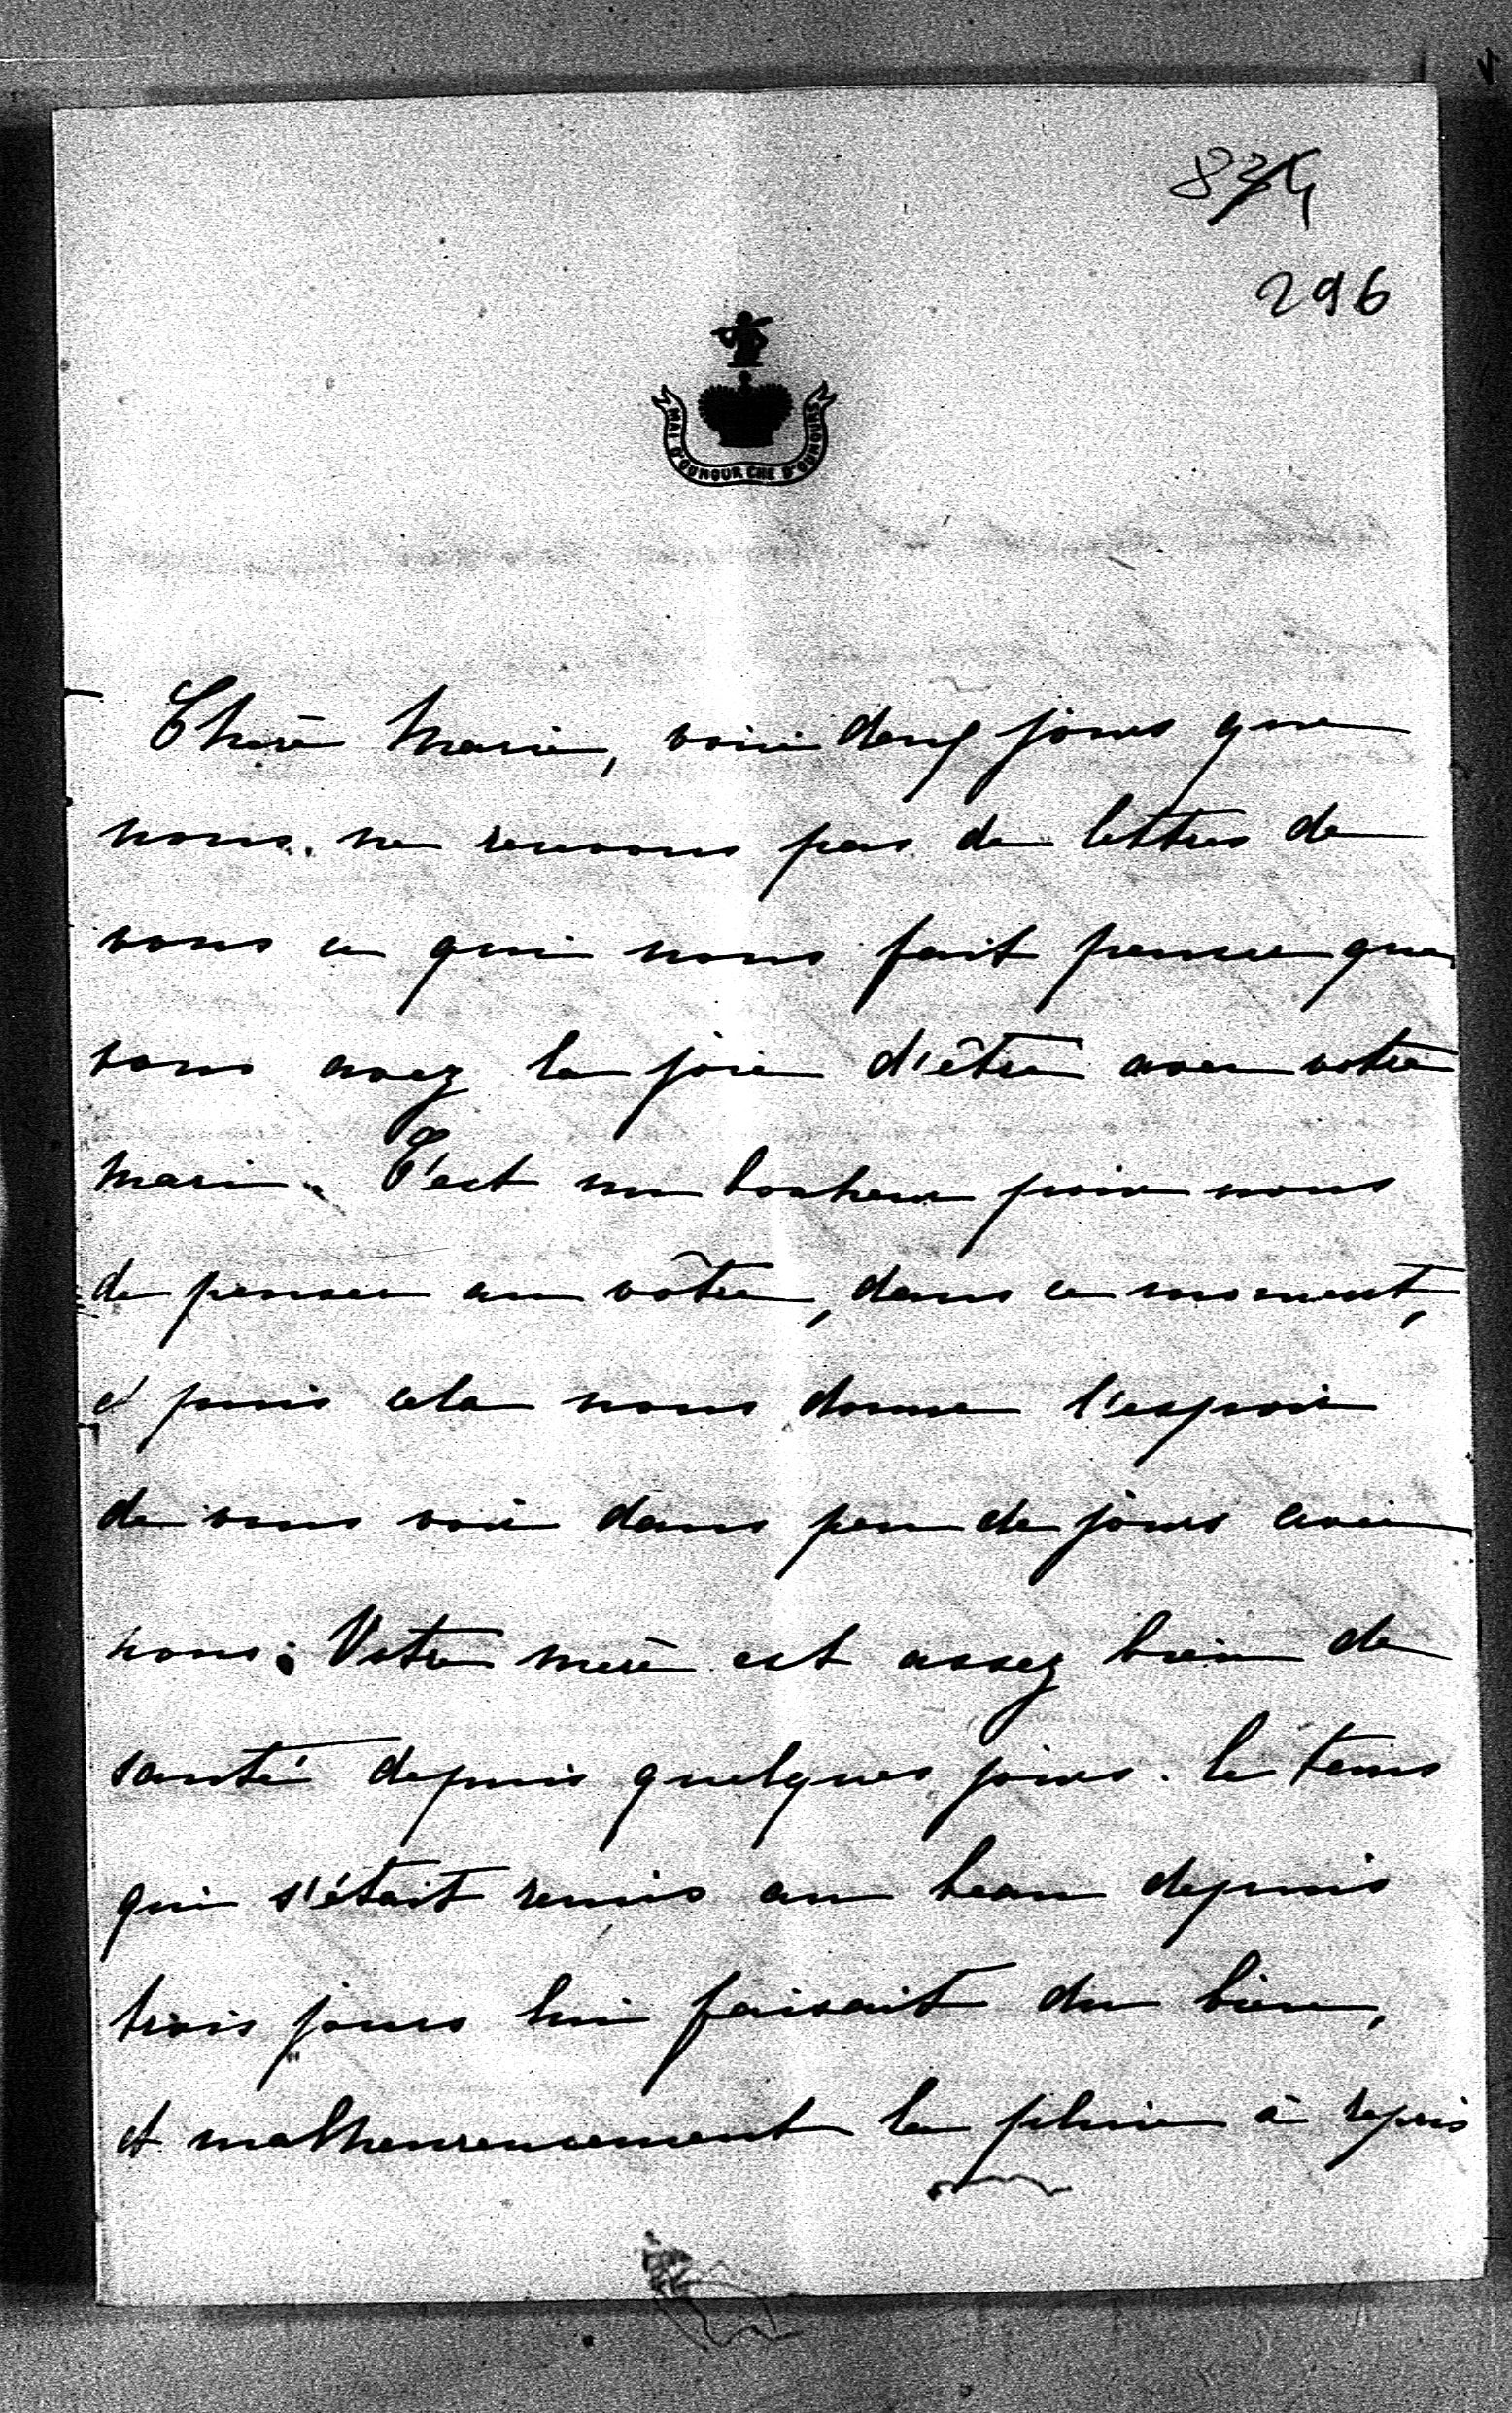 296
MAI D'OUNOUR CHE D'OUNOURS
Chère Marie, voici deux jours que
nous ne recevons pas de lettres de
vous ce qui nous fait penser que
vous avez la joie d'être avec votre
mari. C'est un bonheur pour nous
de penser au vôtre, dans ce moment,
et puis cela nous donne l'espoir
de vous voir dans peu de jours avec
nous. Votre mère est assez bien de
santé depuis quelques jours. le tems
qui s'était remis au beau depuis
trois jours lui faisait du bien,
et malheureusement la pluie à repris